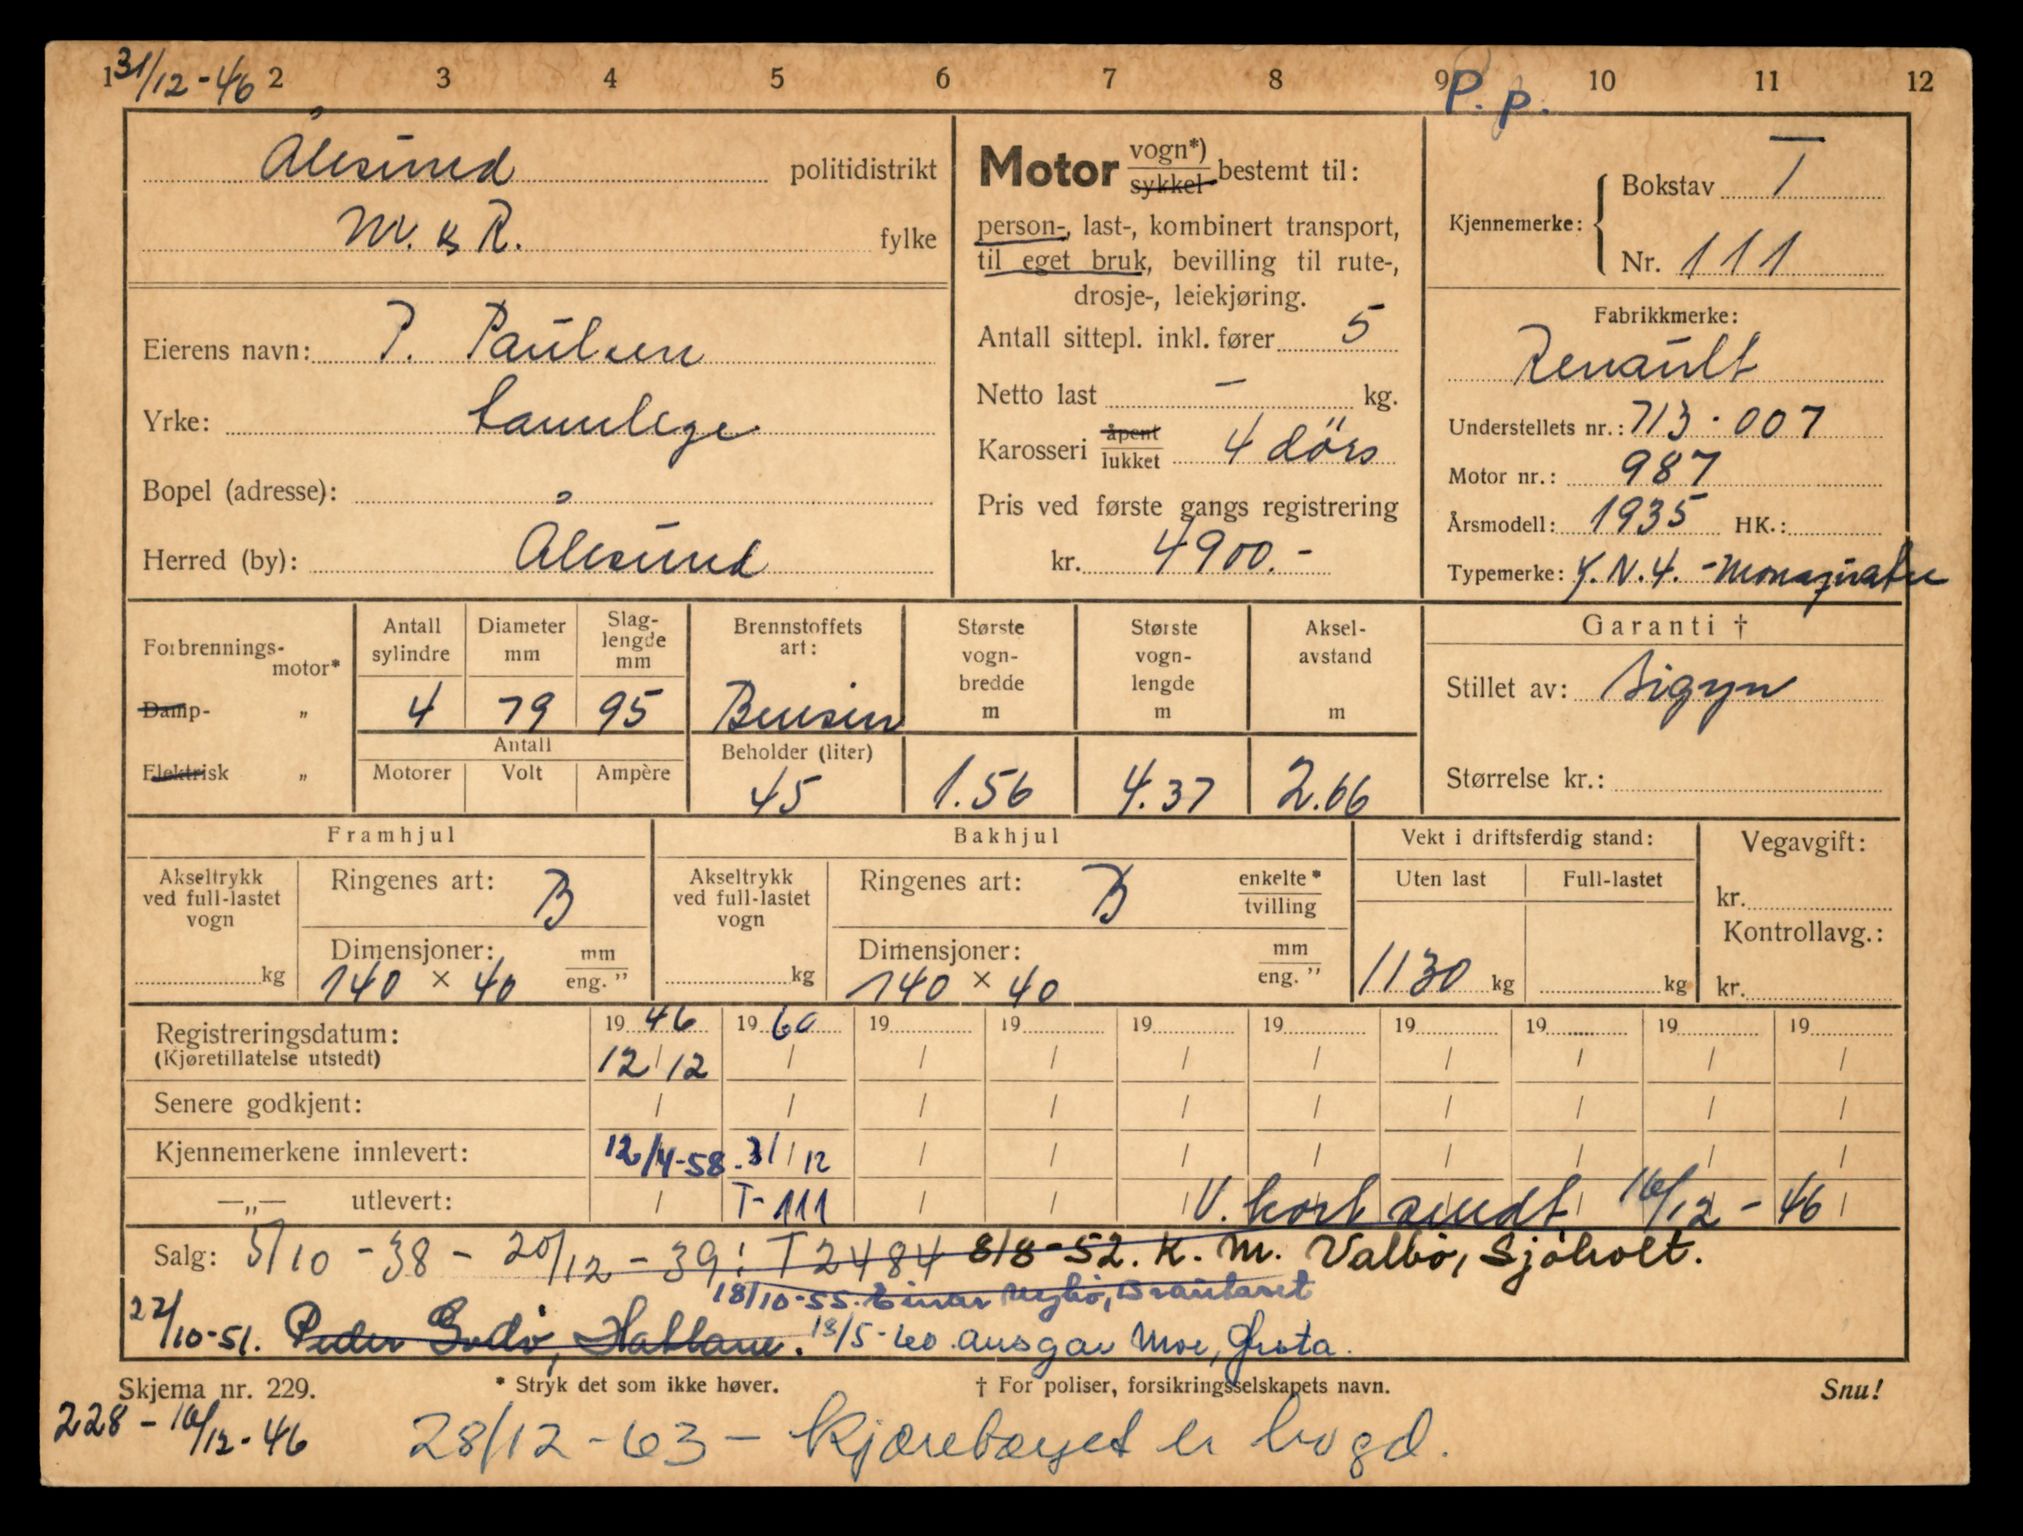 1 2 3 4 5 6 7 8 9 10 11 12
31/12-46
P. p.
Ålesund politidistrikt
M. & R. fylke
Eierens navn: P. Paulsen
Yrke: tannlege
Bopel (adresse):
Herred (by): Ålesund
Motor vogn*) sykkel bestemt til:
person-, last-, kombinert transport,
til eget bruk, bevilling til rute-,
drosje-, leiekjøring.
Antall sittepl. inkl. fører 5
Netto last — kg.
Karosseri åpent lukket 4 dörs
Pris ved første gangs registrering
kr. 4900.-
Kjennemerke: Bokstav T
Nr. 111
Fabrikkmerke:
Renault
Understellets nr.: 713.007
Motor nr.: 987
Årsmodell: 1935 HK.:
Typemerke: Y.N.4. -Monaquatre
Forbrennings-motor*
Damp- „
Elektrisk „
Antall sylindre Diameter mm Slag-lengde mm
4 79 95
Antall
Motorer Volt Ampère
Brennstoffets art:
Bensin
Beholder (liter)
45
Største vogn-bredde m
1.56
Største vogn-lengde m
4.37
Aksel-avstand m
2.66
Garanti †
Stillet av: Sigyn
Størrelse kr.:
Framhjul
Akseltrykk ved full-lastet vogn
kg
Ringenes art: B
Dimensjoner: mm eng. ”
140 × 40
Bakhjul
Akseltrykk ved full-lastet vogn
kg
Ringenes art: B enkelte* tvilling
Dimensjoner: mm eng. ”
140 × 40
Vekt i driftsferdig stand:
Uten last Full-lastet
1130 kg kg
Vegavgift:
kr.
Kontrollavg.:
kr.
Registreringsdatum: 19 46 19 60 19 19 19 19 19 19 19 19
(Kjøretillatelse utstedt) 12/12 / / / / / / / / /
Senere godkjent: / / / / / / / / / /
Kjennemerkene innlevert: 12/4-58 - 31/12 / / / / / / / /
—„— utlevert: / T-111 / / / V. kort sendt 16/12-46 /
Salg: 5/10-38 - 20/12-39: T 2484 8/8-52. K. M. Valbö, Sjöholt.
18/10-55. Einar Nybö, Brautaset
22/10-51. Peder Godö, Hatlane. 18/5-60. Ansgar Moe, Grota.
Skjema nr. 229. * Stryk det som ikke høver. † For poliser, forsikringsselskapets navn. Snu!
228 - 16/12-46
28/12-63 - Kjørebøyet er bygd.